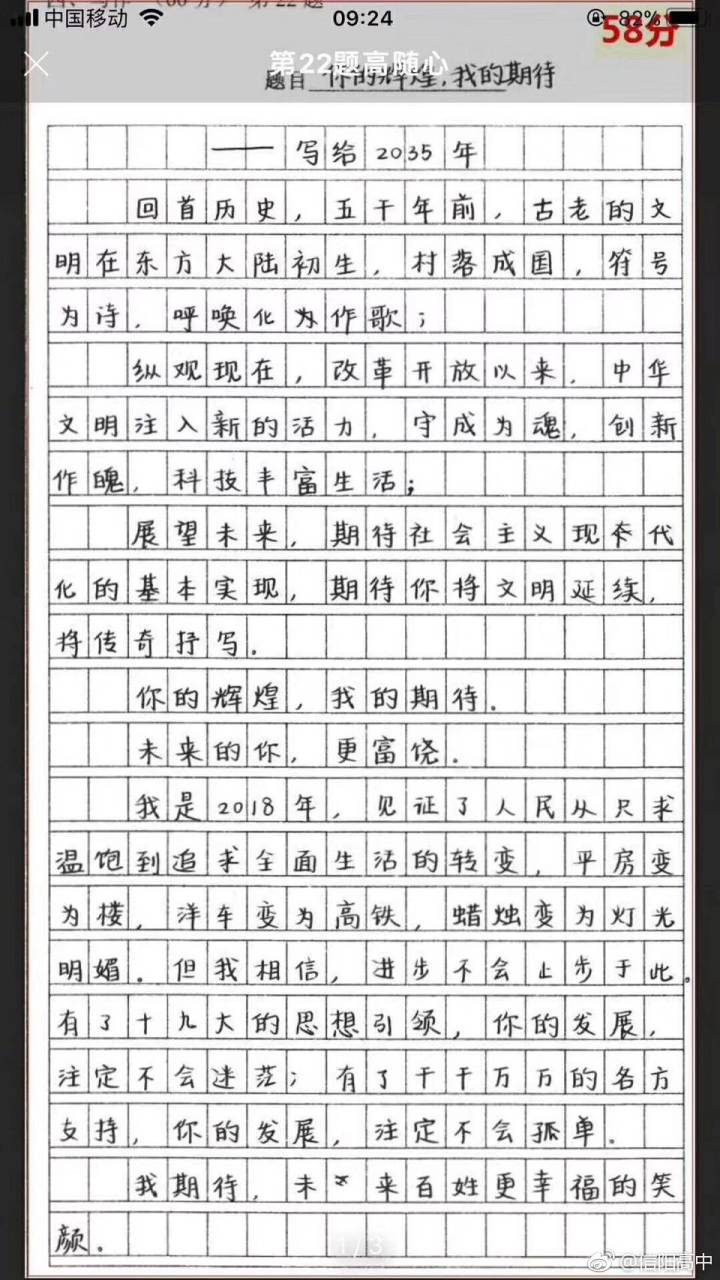 四、写作（60分）第22题
中国移动 09:24 82%
58分
第22题高随心
题目 你的辉煌，我的期待
——写给2035年
回首历史，五千年前，古老的文
明在东方大陆初生，村落成国，符号
为诗，呼唤化为作歌；
纵观现在，改革开放以来，中华
文明注入新的活力，守成为魂，创新
作魄，科技丰富生活；
展望未来，期待社会主义现代
化的基本实现，期待你将文明延续，
将传奇抒写。
你的辉煌，我的期待。
未来的你，更富饶。
我是2018年，见证了人民从只求
温饱到追求全面生活的转变，平房变
为楼，洋车变为高铁，蜡烛变为灯光
明媚。但我相信，进步不会止步于此。
有了十九大的思想引领，你的发展，
注定不会迷茫；有了千千万万的各方
支持，你的发展，注定不会孤单。
我期待，未来百姓更幸福的笑
颜。
1/3
@信阳高中